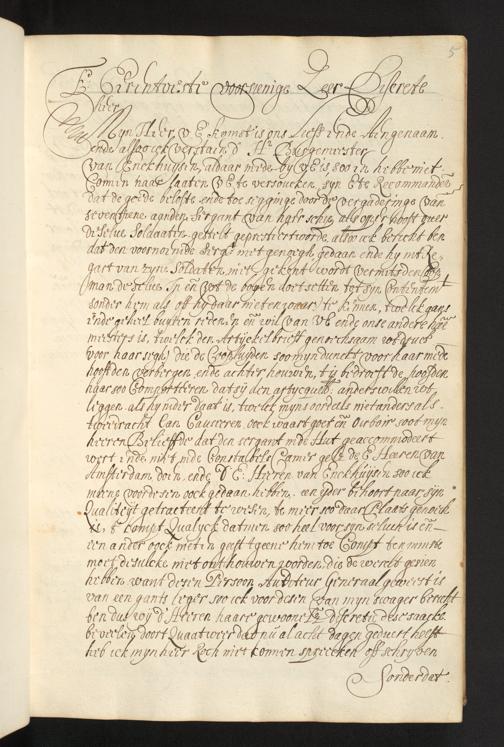 5
E: Erintvieste voorsienige Zeer Discrete
Hier
Mijn Heer, V E komst is ons Lieff ende Aengenaam
ende alsoo ick verstaen d' Hr Burgemeester
van Enckhuijsen, aldaar mede by V E is soo en hebbe niet
Connen naar laaten V E te versoucken, syn E te Recommanderen
dat de gedde belofte ende toe segginge door de vergaderinge van
seventhiene aenden Sergant van haer schip als opper hooft over
de selve Soldaaten gestelt gepresteert worde, alsoo ick bericht ben
dat den voornoemde Serg.t niet genoegh gedaan ende hy niet
gart van zyne Soldaten niet gekent wordt vermits den
man deselve in en uijt de boyen doet setten tot syn Contentement
sonder hem als off hy daar niet en waar te kennen, twelck gans
ende geheel buyten reden in en wil van V E ende onse andere heere
meesters is, twelck den Artyckel brieff genoechsaam uijtdruct
voor haar segh die de Zeeluyden soo myn dunckt voor haar mede
hoofden verbergen, ende achter houwen, tis bedroeft de hoofden
haar soo Comporteeren dat sy den artyckel anders willen uijt
leggen als hy inder daat is, twelck myns oordeels niet anders als
tweedracht Can Causeeren oock waart goet en Oirboir soo't myn
heeren Beliefde dat den sergant mede Hut geaccommodeert
wert ende niet in de Constabels Camer gelyck de E Heeren van
Amsterdam doen, ende D' E: Heeren van Enckhuysen soo ick
meene voor desen oock gedaan hebben, een yder behoort naar syn
Qualiteyt getracteert te werden, te meer soo daar Plaats genoech
is, t' Compt Qualyck datmen soo heel voor syn selven is en
een ander oock niet en geeft 't geene hem toe Compt ten minste
moet desulcke niet ont houwen worden, die de werelt gesien
hebben, want desen Persoon Auditeur Generaal geweest is
van een gants Leger soo ick voor desen van myn swager bericht
ben dus wy d' Heeren haare gewoone discretie dese saacke
beveelen, door't quaat weer dat nu al acht dagen geduert heeft
heb ick myn heer Koch niet konnen spreecken off schryben
Sonder dat